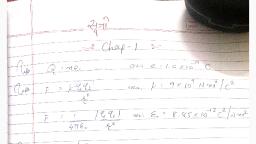 सूत्र
Chap-1 :-
Q = ne, e = 1.6×10⁻¹⁹ C
F = kq₁q₂/r² k = 9×10⁹ Nm²/C²
F = 1/4πε₀ |q₁q₂|/r² ε₀ = 8.85×10⁻¹² C²/Nm²